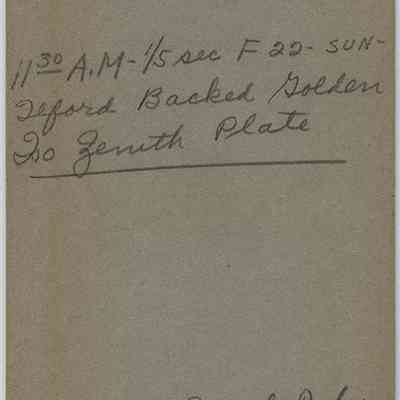 11 30 A.M - 1/5 sec F 22 - SUN -
Teford Backed Golden
Iso Zenith Plate